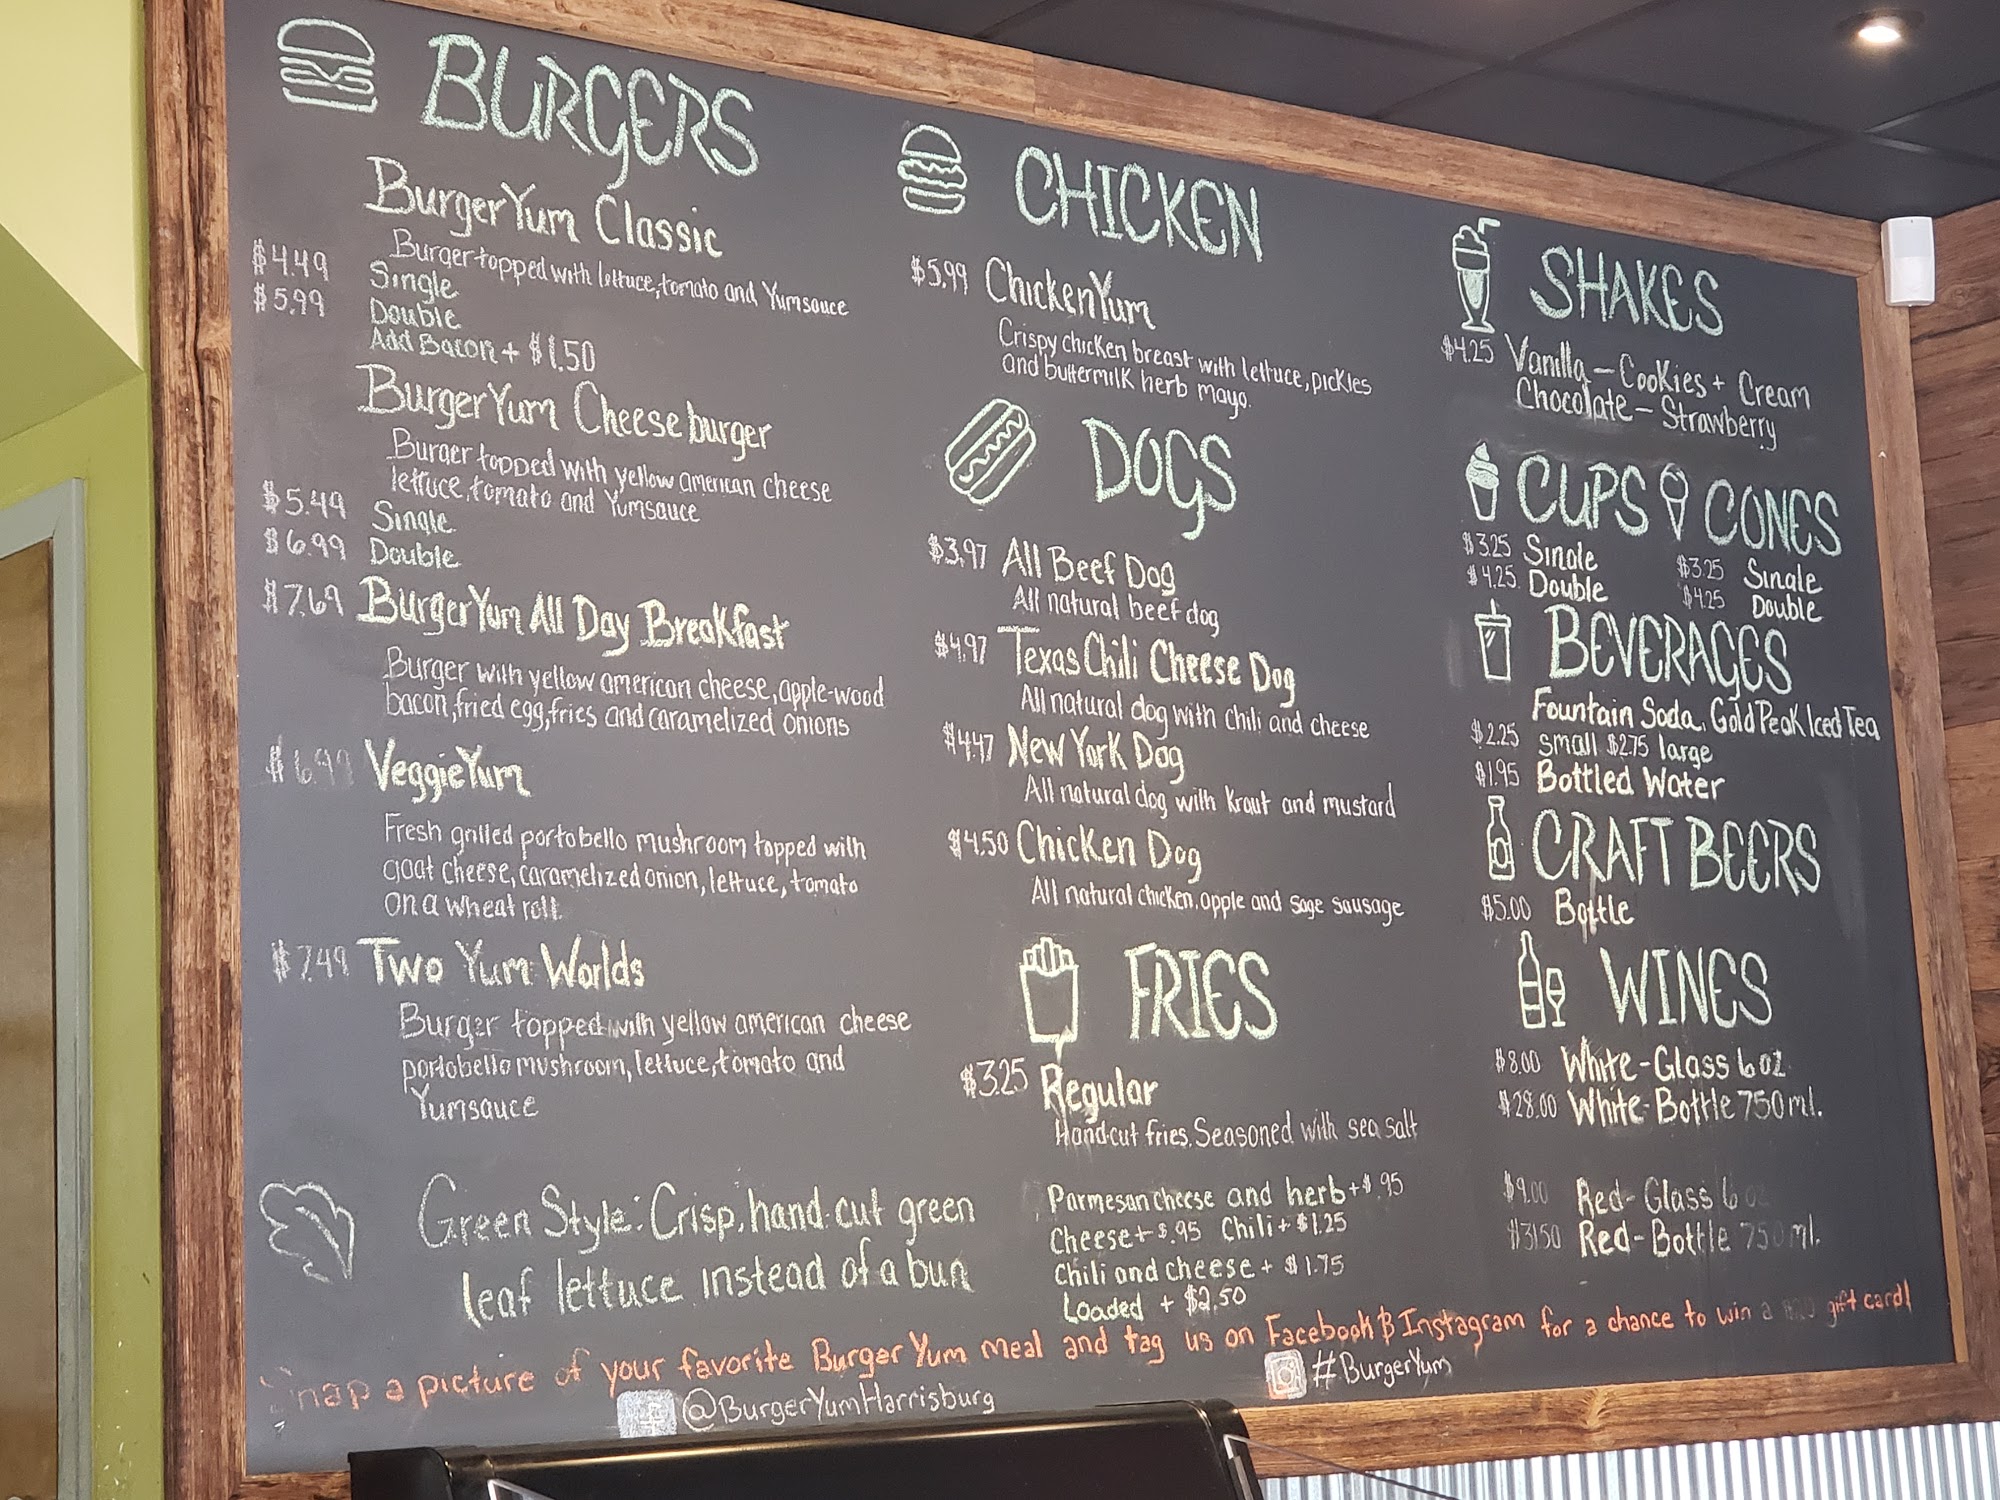 BURGERS
BurgerYum Classic
Burger topped with lettuce, tomato and Yumsauce
$4.49 Single
$5.99 Double
Add Bacon + $1.50
BurgerYum Cheeseburger
Burger topped with yellow american cheese
lettuce, tomato and Yumsauce
$5.49 Single
$6.99 Double
$7.69 BurgerYum All Day Breakfast
Burger with yellow american cheese, apple-wood
bacon, fried egg, fries and caramelized onions
$6.99 VeggieYum
Fresh grilled portobello mushroom topped with
goat cheese, caramelized onion, lettuce, tomato
on a wheat roll.
$7.49 Two Yum Worlds
Burger topped with yellow american cheese
portobello mushroom, lettuce, tomato and
Yumsauce
Green Style: Crisp, hand-cut green
leaf lettuce instead of a bun
CHICKEN
$5.99 ChickenYum
Crispy chicken breast with lettuce, pickles
and buttermilk herb mayo.
DOGS
$3.97 All Beef Dog
All natural beef dog
$4.97 Texas Chili Cheese Dog
All natural dog with chili and cheese
$4.47 New York Dog
All natural dog with kraut and mustard
$4.50 Chicken Dog
All natural chicken, apple and sage sausage
FRIES
$3.25 Regular
Hand-cut fries. Seasoned with sea salt
Parmesan cheese and herb + $.95
Cheese + $.95 Chili + $1.25
Chili and cheese + $1.75
Loaded + $2.50
SHAKES
$4.25 Vanilla - Cookies + Cream
Chocolate - Strawberry
CUPS CONES
$3.25 Single $3.25 Single
$4.25 Double $4.25 Double
BEVERAGES
Fountain Soda, Gold Peak Iced Tea
$2.25 small $2.75 large
$1.95 Bottled Water
CRAFT BEERS
$5.00 Bottle
WINES
$8.00 White-Glass 6 oz
$28.00 White-Bottle 750 ml.
$9.00 Red-Glass 6 oz
$31.50 Red-Bottle 750 ml.
Snap a picture of your favorite BurgerYum meal and tag us on Facebook & Instagram for a chance to win a gift card!
@BurgerYumHarrisburg #BurgerYum